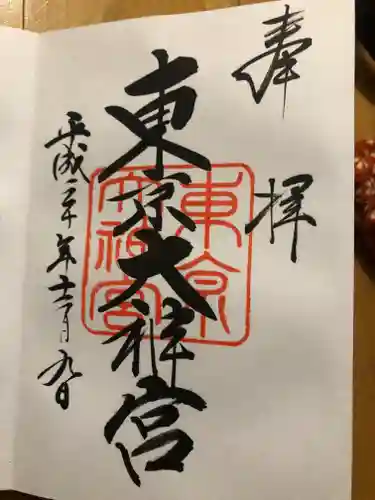 奉拝
東京大神宮
東京
大神宮
平成二十年十二月九日